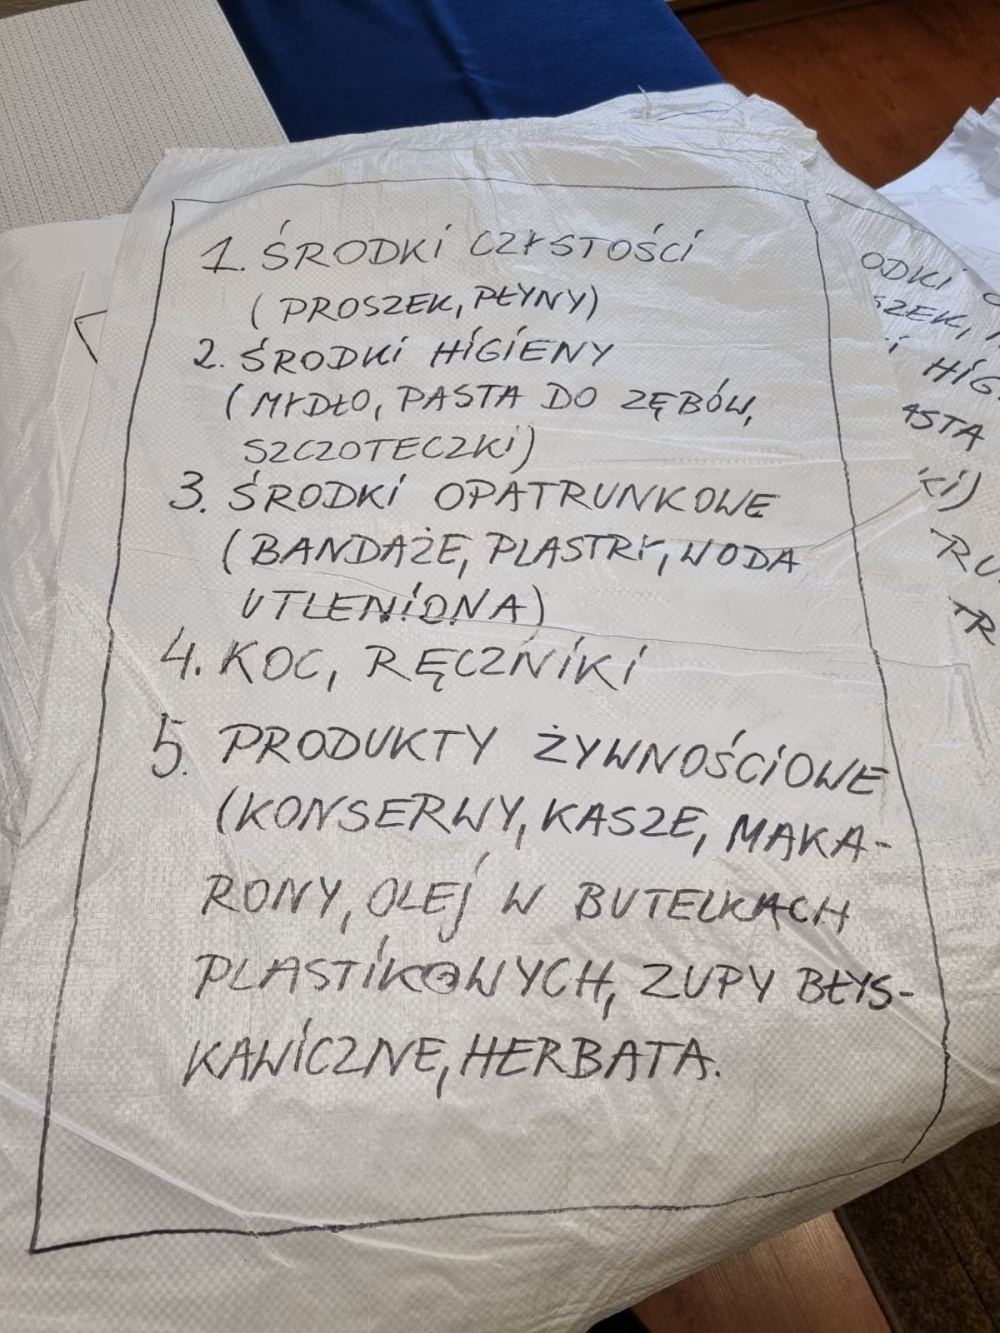 1. ŚRODKI CZYSTOŚCI
(PROSZEK, PŁYNY)
2. ŚRODKI HIGIENY
(MYDŁO, PASTA DO ZĘBÓW,
SZCZOTECZKI)
3. ŚRODKI OPATRUNKOWE
(BANDAŻE, PLASTRY, WODA
UTLENIONA)
4. KOC, RĘCZNIKI
5. PRODUKTY ŻYWNOŚCIOWE
(KONSERWY, KASZE, MAKA-
RONY, OLEJ W BUTELKACH
PLASTIKOWYCH, ZUPY BŁYS-
KAWICZNE, HERBATA.